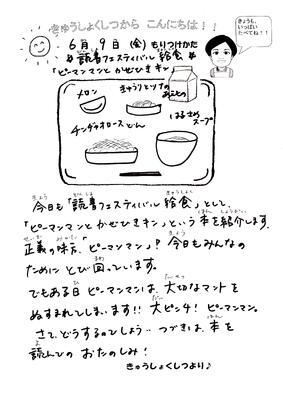 きゅうしょくしつから こんにちは!!
きょうも、
いっぱい
たべてね!!
6月9日(金)もりつけかた
☆読書フェスティバル給食☆
「ピーマンマンとかぜひきキン」
メロン
きゅうりとツナの
あえもの
チンジャオロースどん
はるさめ
スープ
今日も「読書フェスティバル給食」として、
「ピーマンマンとかぜひきキン」という本を紹介します。
正義の味方、"ピーマンマン"♪今日もみんなの
ためにとび回っています。
でもある日ピーマンマンは、大切なマントを
ぬすまれてしまいます!!大ピンチ!ピーマンマン。
さて、どうするのでしょう…つづきは、本を
読んでの おたのしみ!
きゅうしょくしつより♪